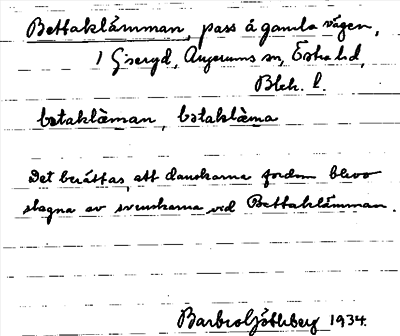 Bettaklämman, pass å gamla vägen,
1 G:seryd, Asarums sn, Bräkne hd,
Blek. l.
betaklɛ̀man, bɛtaklɛ̀ma
Det berättas, att danskarna fordom blevo
slagna av svenskarna vid Bettaklämman.
Barbro Göthberg 1934.